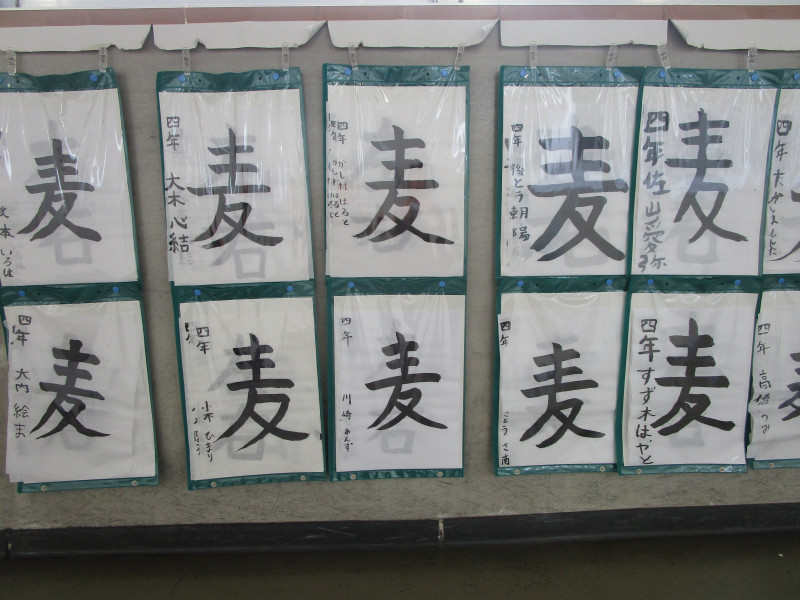 麦
本 いろは
麦
四年 大木 心結
麦
四年 かしむらはると
麦
四年 後とう 朝陽
麦
四年 佐山 愛弥
四年
麦
四年 大内 絵ま
麦
四年 小木 ひまり
麦
四年 川崎 あんず
麦
四年
麦
四年 すず木はやと
麦
四年 高